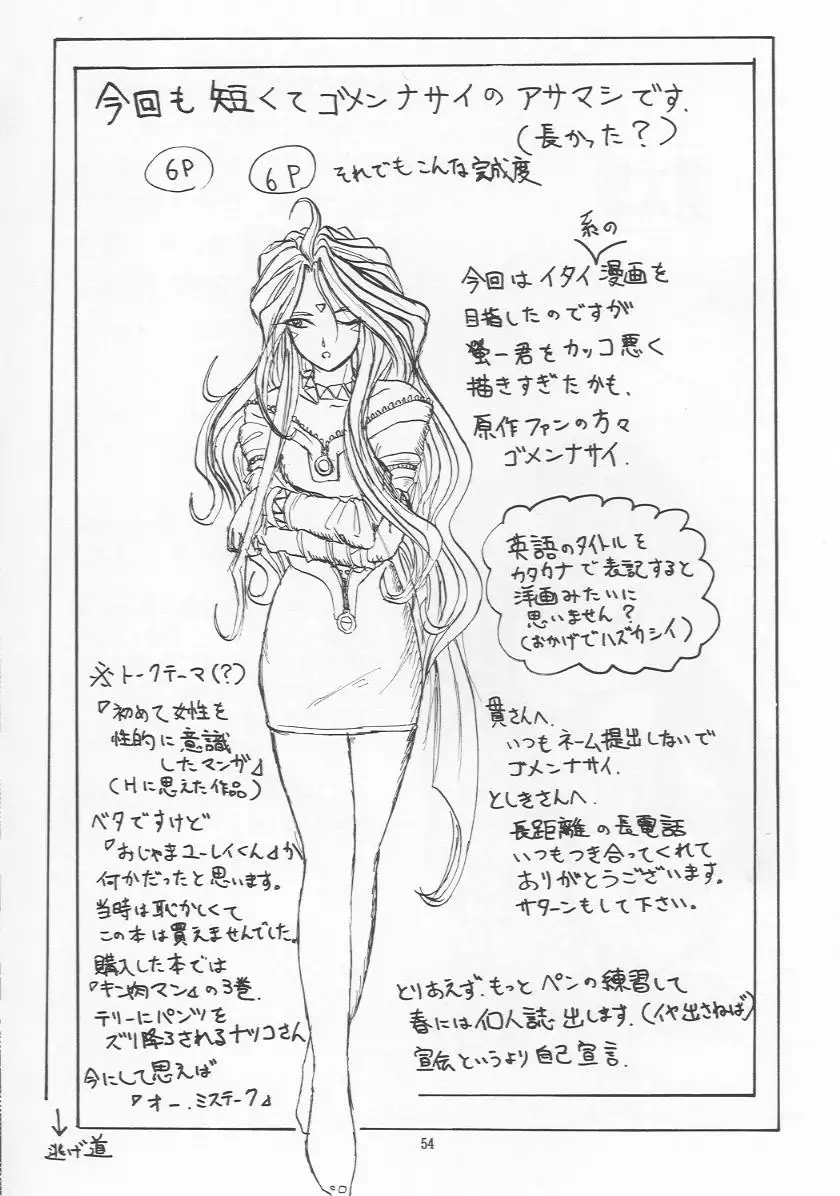 今回も 短くて ゴメンナサイの アサマシです.
(長かった？)
6P
6P
それでもこんな完成度
系の
今回は イタイ 漫画を
目指したのですが
螢一君を カッコ悪く
描きすぎたかも.
原作ファンの方々
ゴメンナサイ.
英語のタイトルを
カタカナで表記すると
洋画みたいに
思いません？
(おかげでハズカシイ)
※トークテーマ(?)
『初めて女性を
性的に意識
したマンガ』
(Hに思えた作品)
ベタですけど
『おじゃまユーレイくん』か
何かだったと思います。
当時は恥かしくて
この本は買えませんでした。
購入した本では
『キン肉マン』の3巻.
テリーにパンツを
ズリ降ろされるナツコさん
今にして思えば
『オー.ミステーク』
貫さんへ.
いつもネーム提出しないで
ゴメンナサイ.
としきさんへ.
長距離の長電話
いつもつき合ってくれて
ありがとうございます。
サターンもして下さい。
とりあえず.もっと ペンの練習して
春には個人誌出します.(イヤ出さねば)
宣伝というより自己宣言.
↓
逃げ道
54